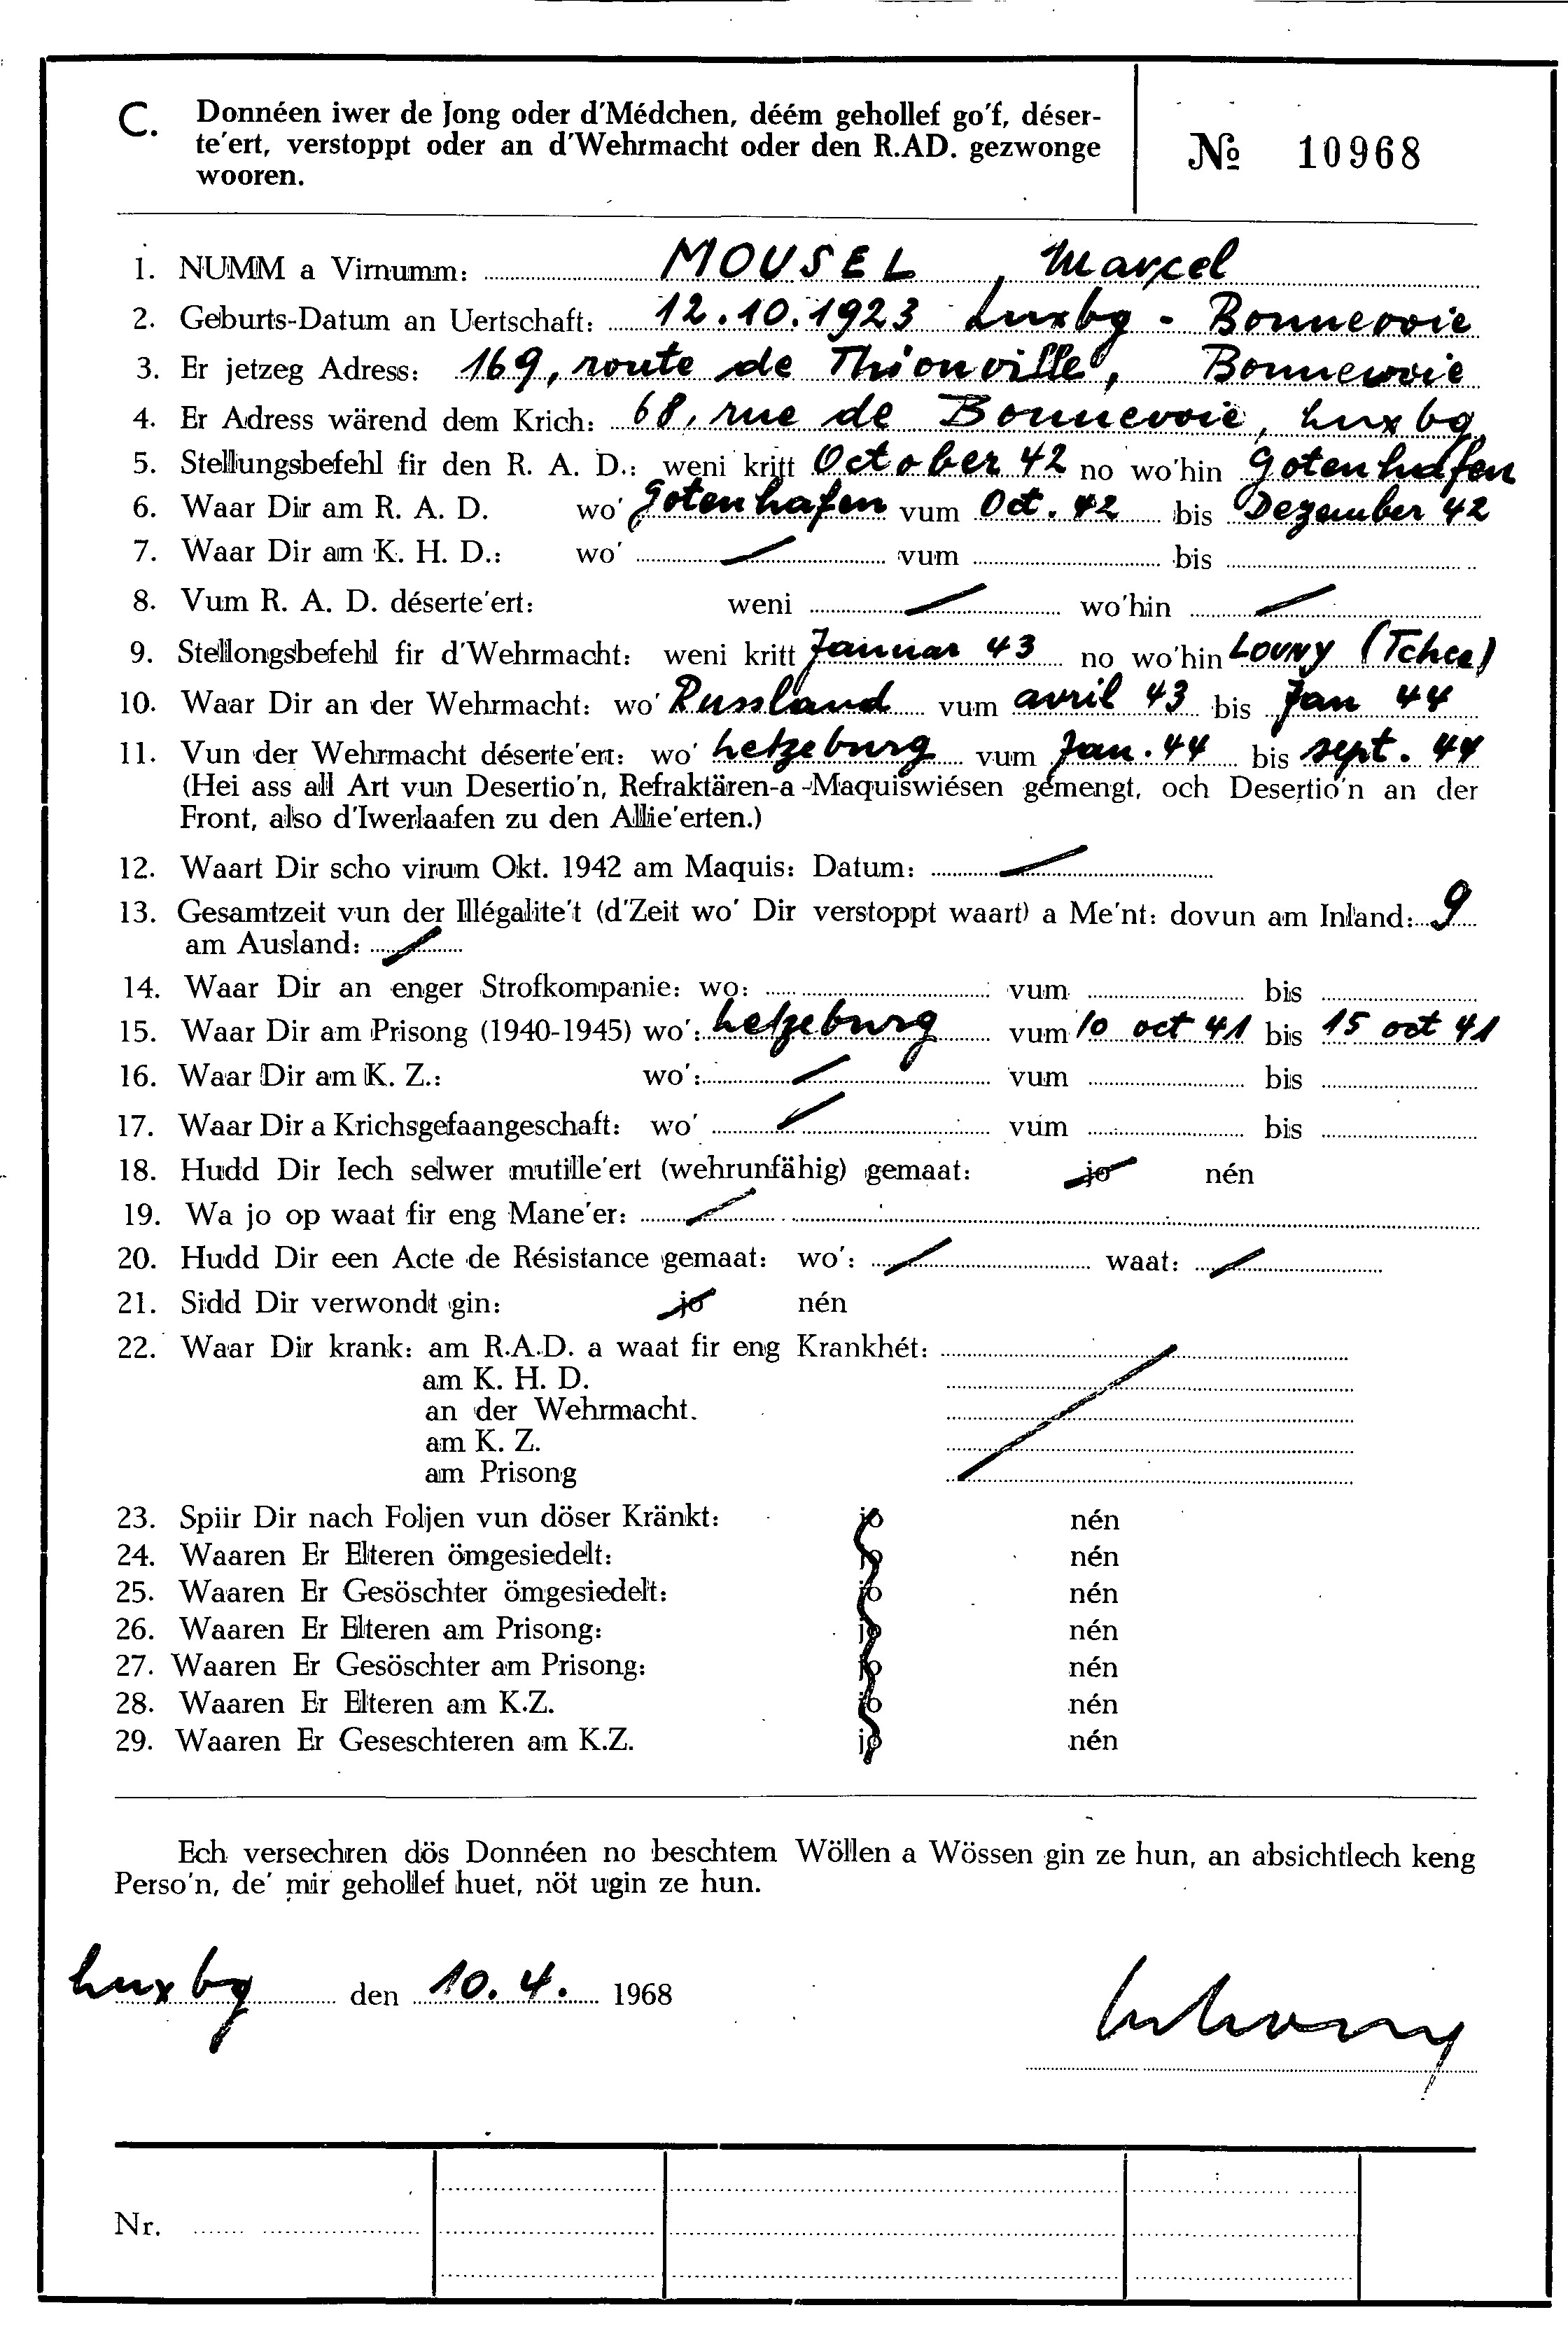 C. Donnéen iwer de Jong oder d'Médchen, déém gehollef go'f, déser-
te'ert, verstoppt oder an d'Wehrmacht oder den R.AD. gezwonge
wooren.
№ 10968
1. NUMM a Virnumm: MOUSEL, Marcel
2. Geburts-Datum an Uertschaft: 12.10.1923 Luxbg - Bonnevoie
3. Er jetzeg Adress: 169, route de Thionville, Bonnevoie
4. Er Adress wärend dem Krich: 68, rue de Bonnevoie, Luxbg
5. Stellungsbefehl fir den R. A. D.: weni kritt October 42 no wo'hin Gotenhafen
6. Waar Dir am R. A. D. wo' Gotenhafen vum Oct. 42 bis Dezember 42
7. Waar Dir am K. H. D.: wo' / vum bis
8. Vum R. A. D. déserte'ert: weni / wo'hin /
9. Stellongsbefehl fir d'Wehrmacht: weni kritt Januar 43 no wo'hin LOUNY (Tchec)
10. Waar Dir an der Wehrmacht: wo' Russland vum avril 43 bis Jan 44
11. Vun der Wehrmacht déserte'ert: wo' Letzeburg vum Jan. 44 bis sept. 44
(Hei ass all Art vun Desertio'n, Refraktären-a-Maquiswiésen gemengt, och Desertio'n an der
Front, also d'Iwerlaafen zu den Allie'erten.)
12. Waart Dir scho virum Okt. 1942 am Maquis: Datum: /
13. Gesamtzeit vun der Illégalite't (d'Zeit wo' Dir verstoppt waart) a Me'nt: dovun am Inland: 9
am Ausland: /
14. Waar Dir an enger Strofkompanie: wo: vum bis
15. Waar Dir am Prisong (1940-1945) wo': Letzeburg vum 10 oct 41 bis 15 oct 41
16. Waar Dir am K. Z.: wo': / vum bis
17. Waar Dir a Krichsgefaangeschaft: wo' / vum bis
18. Hudd Dir Iech selwer mutille'ert (wehrunfähig) gemaat: jo nén
19. Wa jo op waat fir eng Mane'er: /
20. Hudd Dir een Acte de Résistance gemaat: wo': / waat: /
21. Sidd Dir verwondt gin: jo nén
22. Waar Dir krank: am R.A.D. a waat fir eng Krankhét:
am K. H. D.
an der Wehrmacht.
am K. Z.
am Prisong
23. Spiir Dir nach Foljen vun döser Kränkt: jo nén
24. Waaren Er Elteren ömgesiedelt: jo nén
25. Waaren Er Gesöschter ömgesiedelt: jo nén
26. Waaren Er Elteren am Prisong: jo nén
27. Waaren Er Gesöschter am Prisong: jo nén
28. Waaren Er Elteren am K.Z. jo nén
29. Waaren Er Geseschteren am K.Z. jo nén
Ech versechren dös Donnéen no beschtem Wöllen a Wössen gin ze hun, an absichtlech keng
Perso'n, de' mir gehollef huet, nöt ugin ze hun.
Luxbg den 10. 4. 1968
Nr.